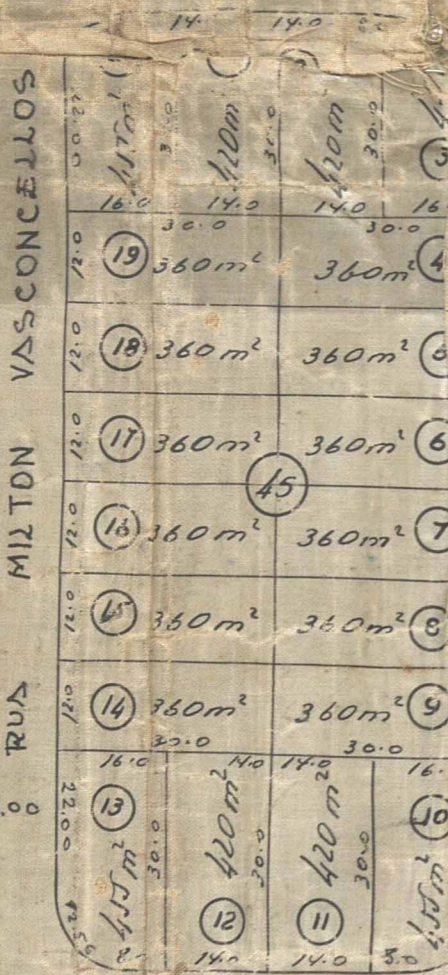 14. 14.0
RUA MILTON VASCONCELLOS
22.00 455m² 30.0 420m 30.0 420m 30.0
16.0 14.0 14.0 16
30.0 30.0
12.0 19 360m² 360m² 4
12.0 18 360m² 360m² 5
12.0 17 360m² 360m² 6
45
12.0 16 360m² 360m² 7
12.0 15 360m² 360m² 8
12.0 14 360m² 360m² 9
30.0 30.0
16.0 14.0 14.0 16.
22.00 13 455m² 30.0 420m² 30.0 420m² 30.0 10 455m²
12.56 12 11
8. 14.0 14.0 8.0